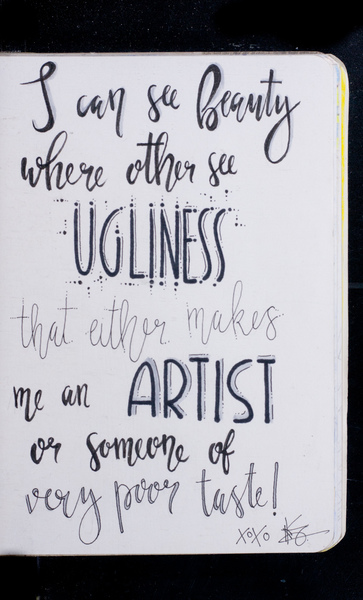 I can see Beauty
where other see
UGLINESS
that either makes
me an ARTIST
or someone of
very poor taste!
xoxo